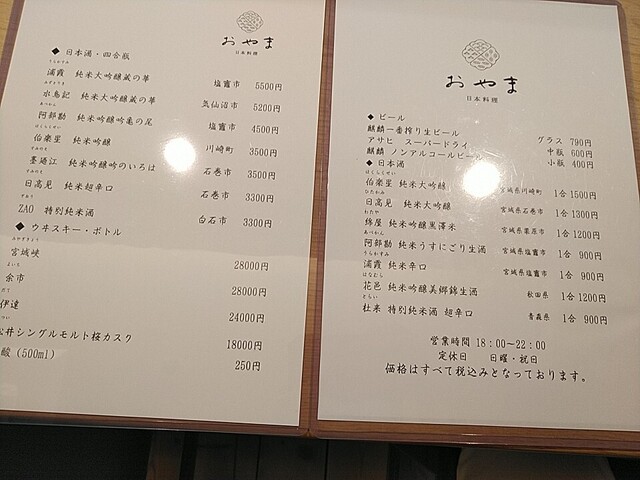 おやま
日本料理
◆ 日本酒・四合瓶
うらかすみ
浦霞 純米大吟醸蔵の華 塩竈市 5500円
みずとりき
水鳥記 純米大吟醸蔵の華 気仙沼市 5200円
あべかん
阿部勘 純米吟醸亀の尾 塩竈市 4500円
はくらくせい
伯楽星 純米吟醸 川崎町 3500円
すみのえ
墨廼江 純米吟醸吟のいろは 石巻市 3700円
日高見 純米超辛口 石巻市 3300円
ZAO 特別純米酒 白石市 3300円
◆ ウヰスキー・ボトル
みやぎきょう
宮城峡 28000円
よいち
余市 28000円
だて
伊達 24000円
松井シングルモルト桜カスク 18000円
酸 (500ml) 250円
おやま
日本料理
◆ ビール
麒麟一番搾り生ビール グラス 790円
アサヒ スーパードライ 中瓶 600円
麒麟 ノンアルコールビール 小瓶 400円
◆ 日本酒
はくらくせい
伯楽星 純米大吟醸 宮城県川崎町 1合 1500円
ひたかみ
日高見 純米大吟醸 宮城県石巻市 1合 1300円
わたや
綿屋 純米吟醸黒澤米 宮城県栗原市 1合 1200円
あべかん
阿部勘 純米うすにごり生酒 宮城県塩竈市 1合 900円
うらかすみ
浦霞 純米辛口 宮城県塩竈市 1合 900円
はなむら
花邑 純米吟醸美郷錦生酒 秋田県 1合 1200円
とらい
杜来 特別純米酒 超辛口 青森県 1合 900円
営業時間 18:00～22:00
定休日 日曜・祝日
価格はすべて税込みとなっております。